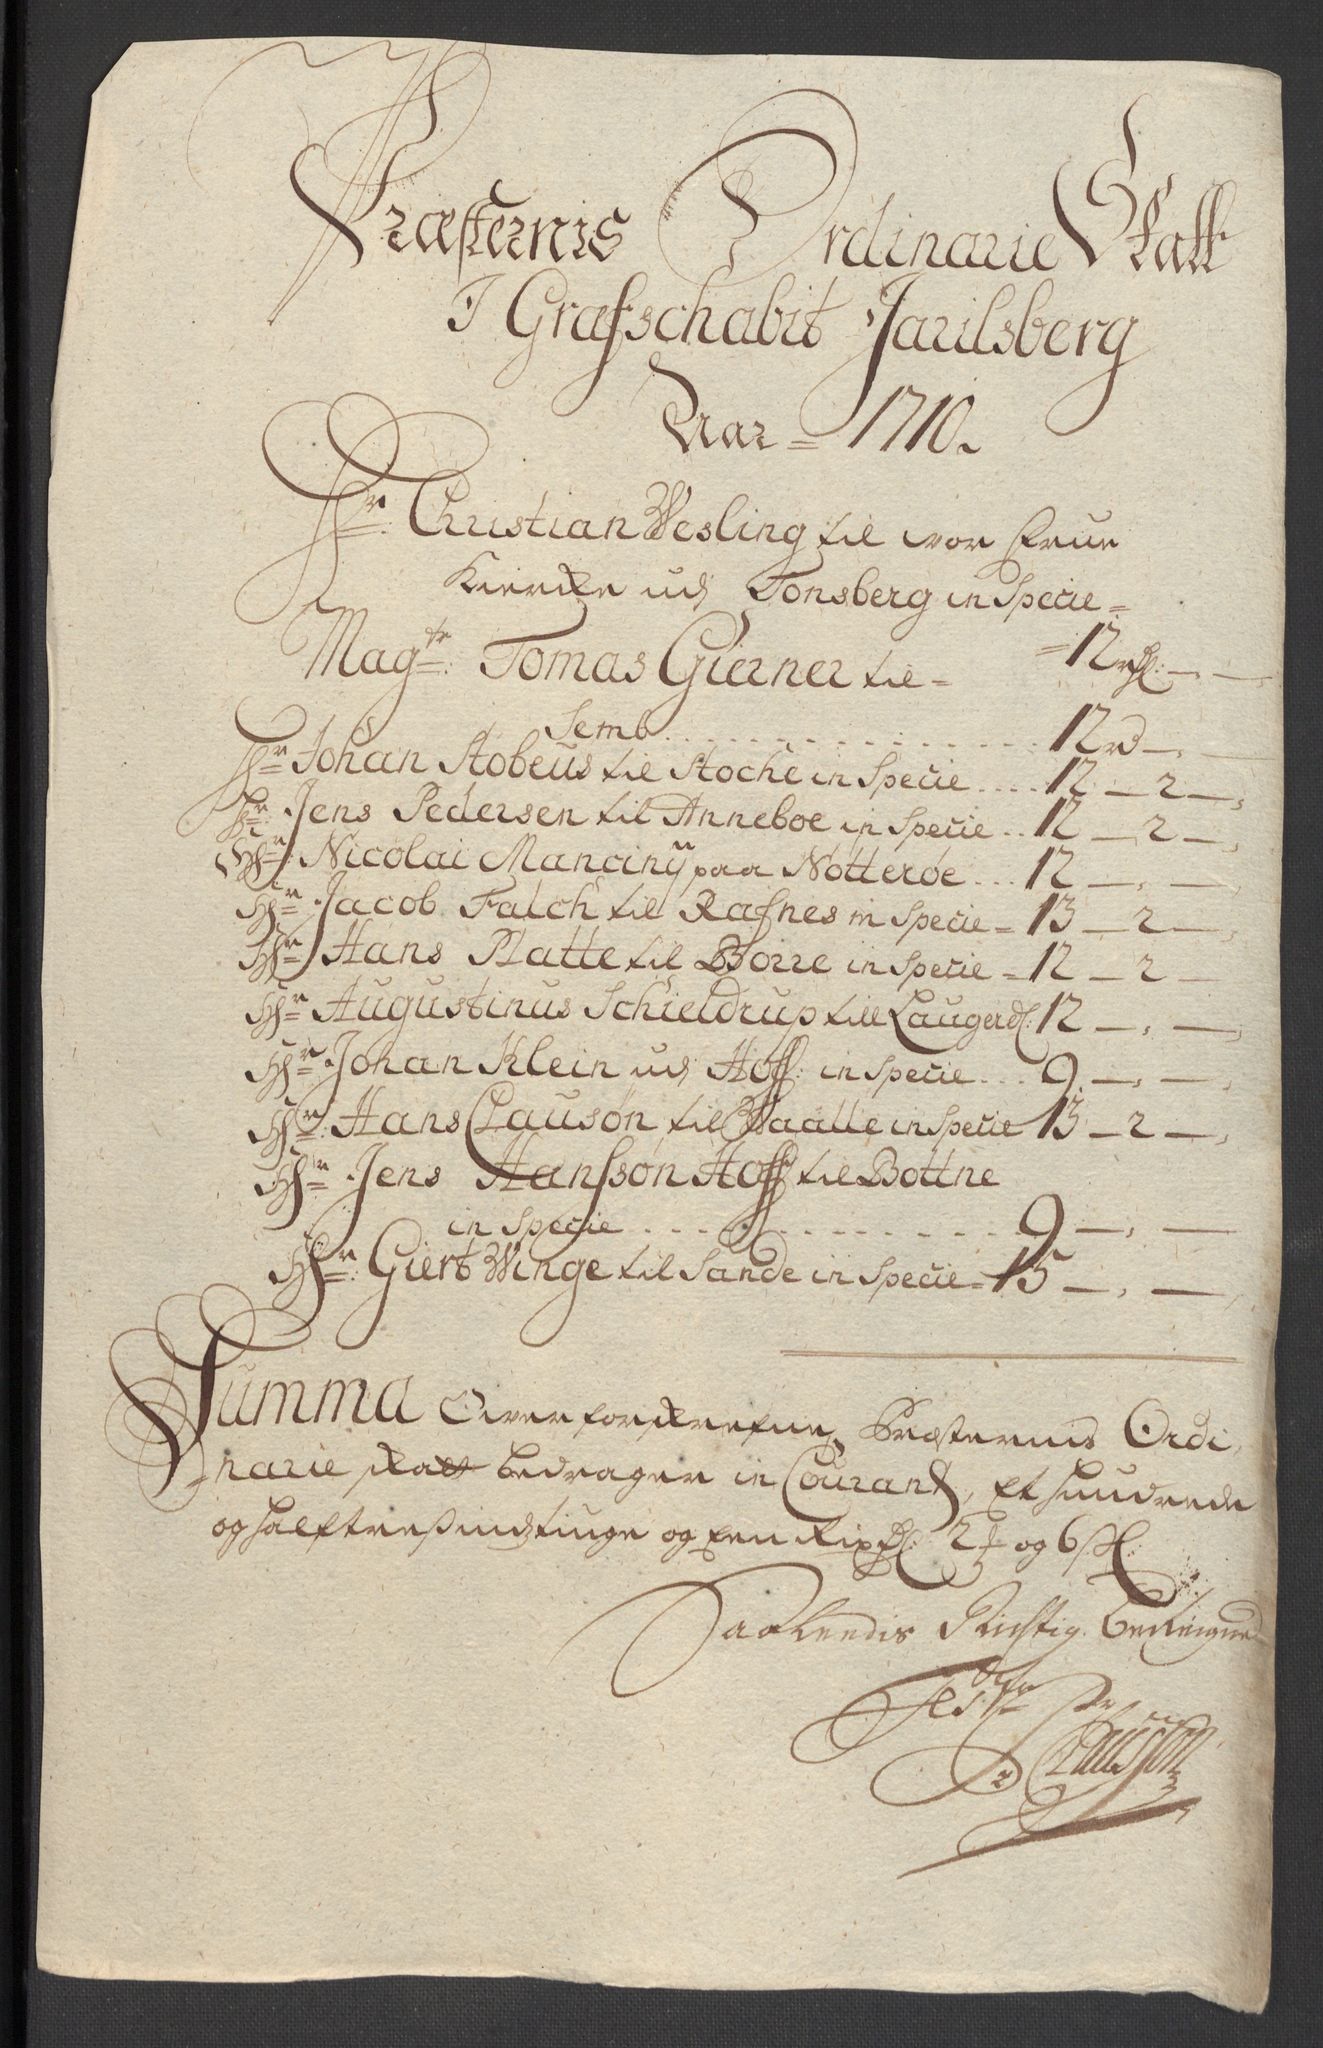 Præsternis Ordinarie Skatt
I Grafschabit Jarilsberg
Aar = 1710.
Hr. Christian Wesling til wor Frue
Kiercke udj Tonsberg in Specie =
Magtr. Tomas Gierner til = = 12 rdl: — , —
Semb . . . . . . 12 rd — , —
Hr. Johan Stobeus til Stoche in Specie .... 12 — 2 — ,
Hr. Jens Pedersen til Anneboe in Specie .. 12 — 2 — ,
Hr. Nicolai Mancinÿ paa Nøtterøe ... 12 — , — ,
Hr. Jacob Falch til Rafnes in Specie = 13 — 2 — ,
Hr. Hans Platte til Borre in Specie = 12 — 2 —
Hr. Augustinus Schieldrup till Laugerd: 12 — , — ,
Hr. Johan Klein udj Hoff: in Specie ... 9 — , — ,
Hr. Hans Clausøn til Waalle in Specie 13 — 2 — ,
Hr. Jens Hanssøn Hoff til Bottne
in Specie . . . . . . 9 — , —
Hr. Giert Winge til Sande in Specie = 15 — , — ,
Summa Ower forskrefne Præsternis Ordi,
narie skatt bedrager in Courant, Et hundrede
og halftresindstiuge og Een Rixdl: 2 ƶ og 6 sk:
Saaledis Rigtig
Clausson